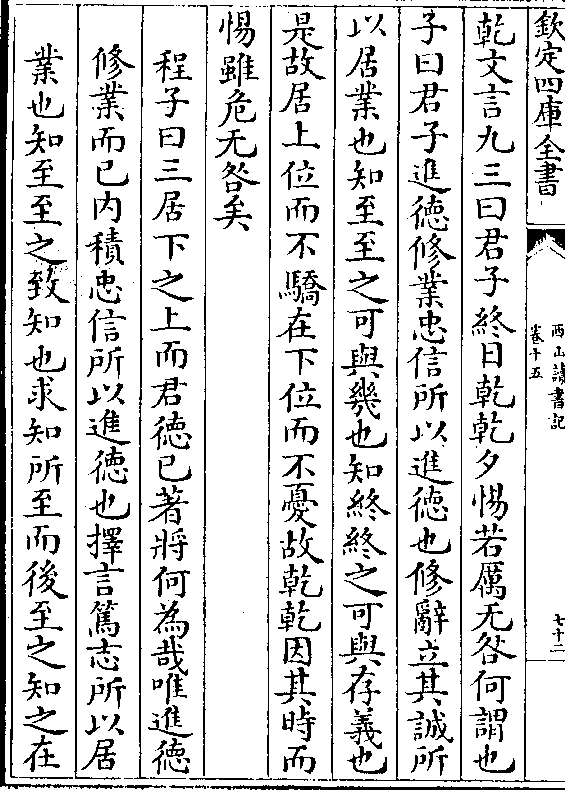 欽定四庫全書
西山讀書記
卷十五
七十二
乾文言九三曰君子終日乾乾夕惕若厲无咎何謂也
子曰君子進德修業忠信所以進德也修辭立其誠所
以居業也知至至之可與幾也知終終之可與存義也
是故居上位而不驕在下位而不憂故乾乾因其時而
惕雖危无咎矣
程子曰三居下之上而君德已著將何為哉唯進德
修業而已内積忠信所以進德也擇言篤志所以居
業也知至至之致知也求知所至而後至之知之在